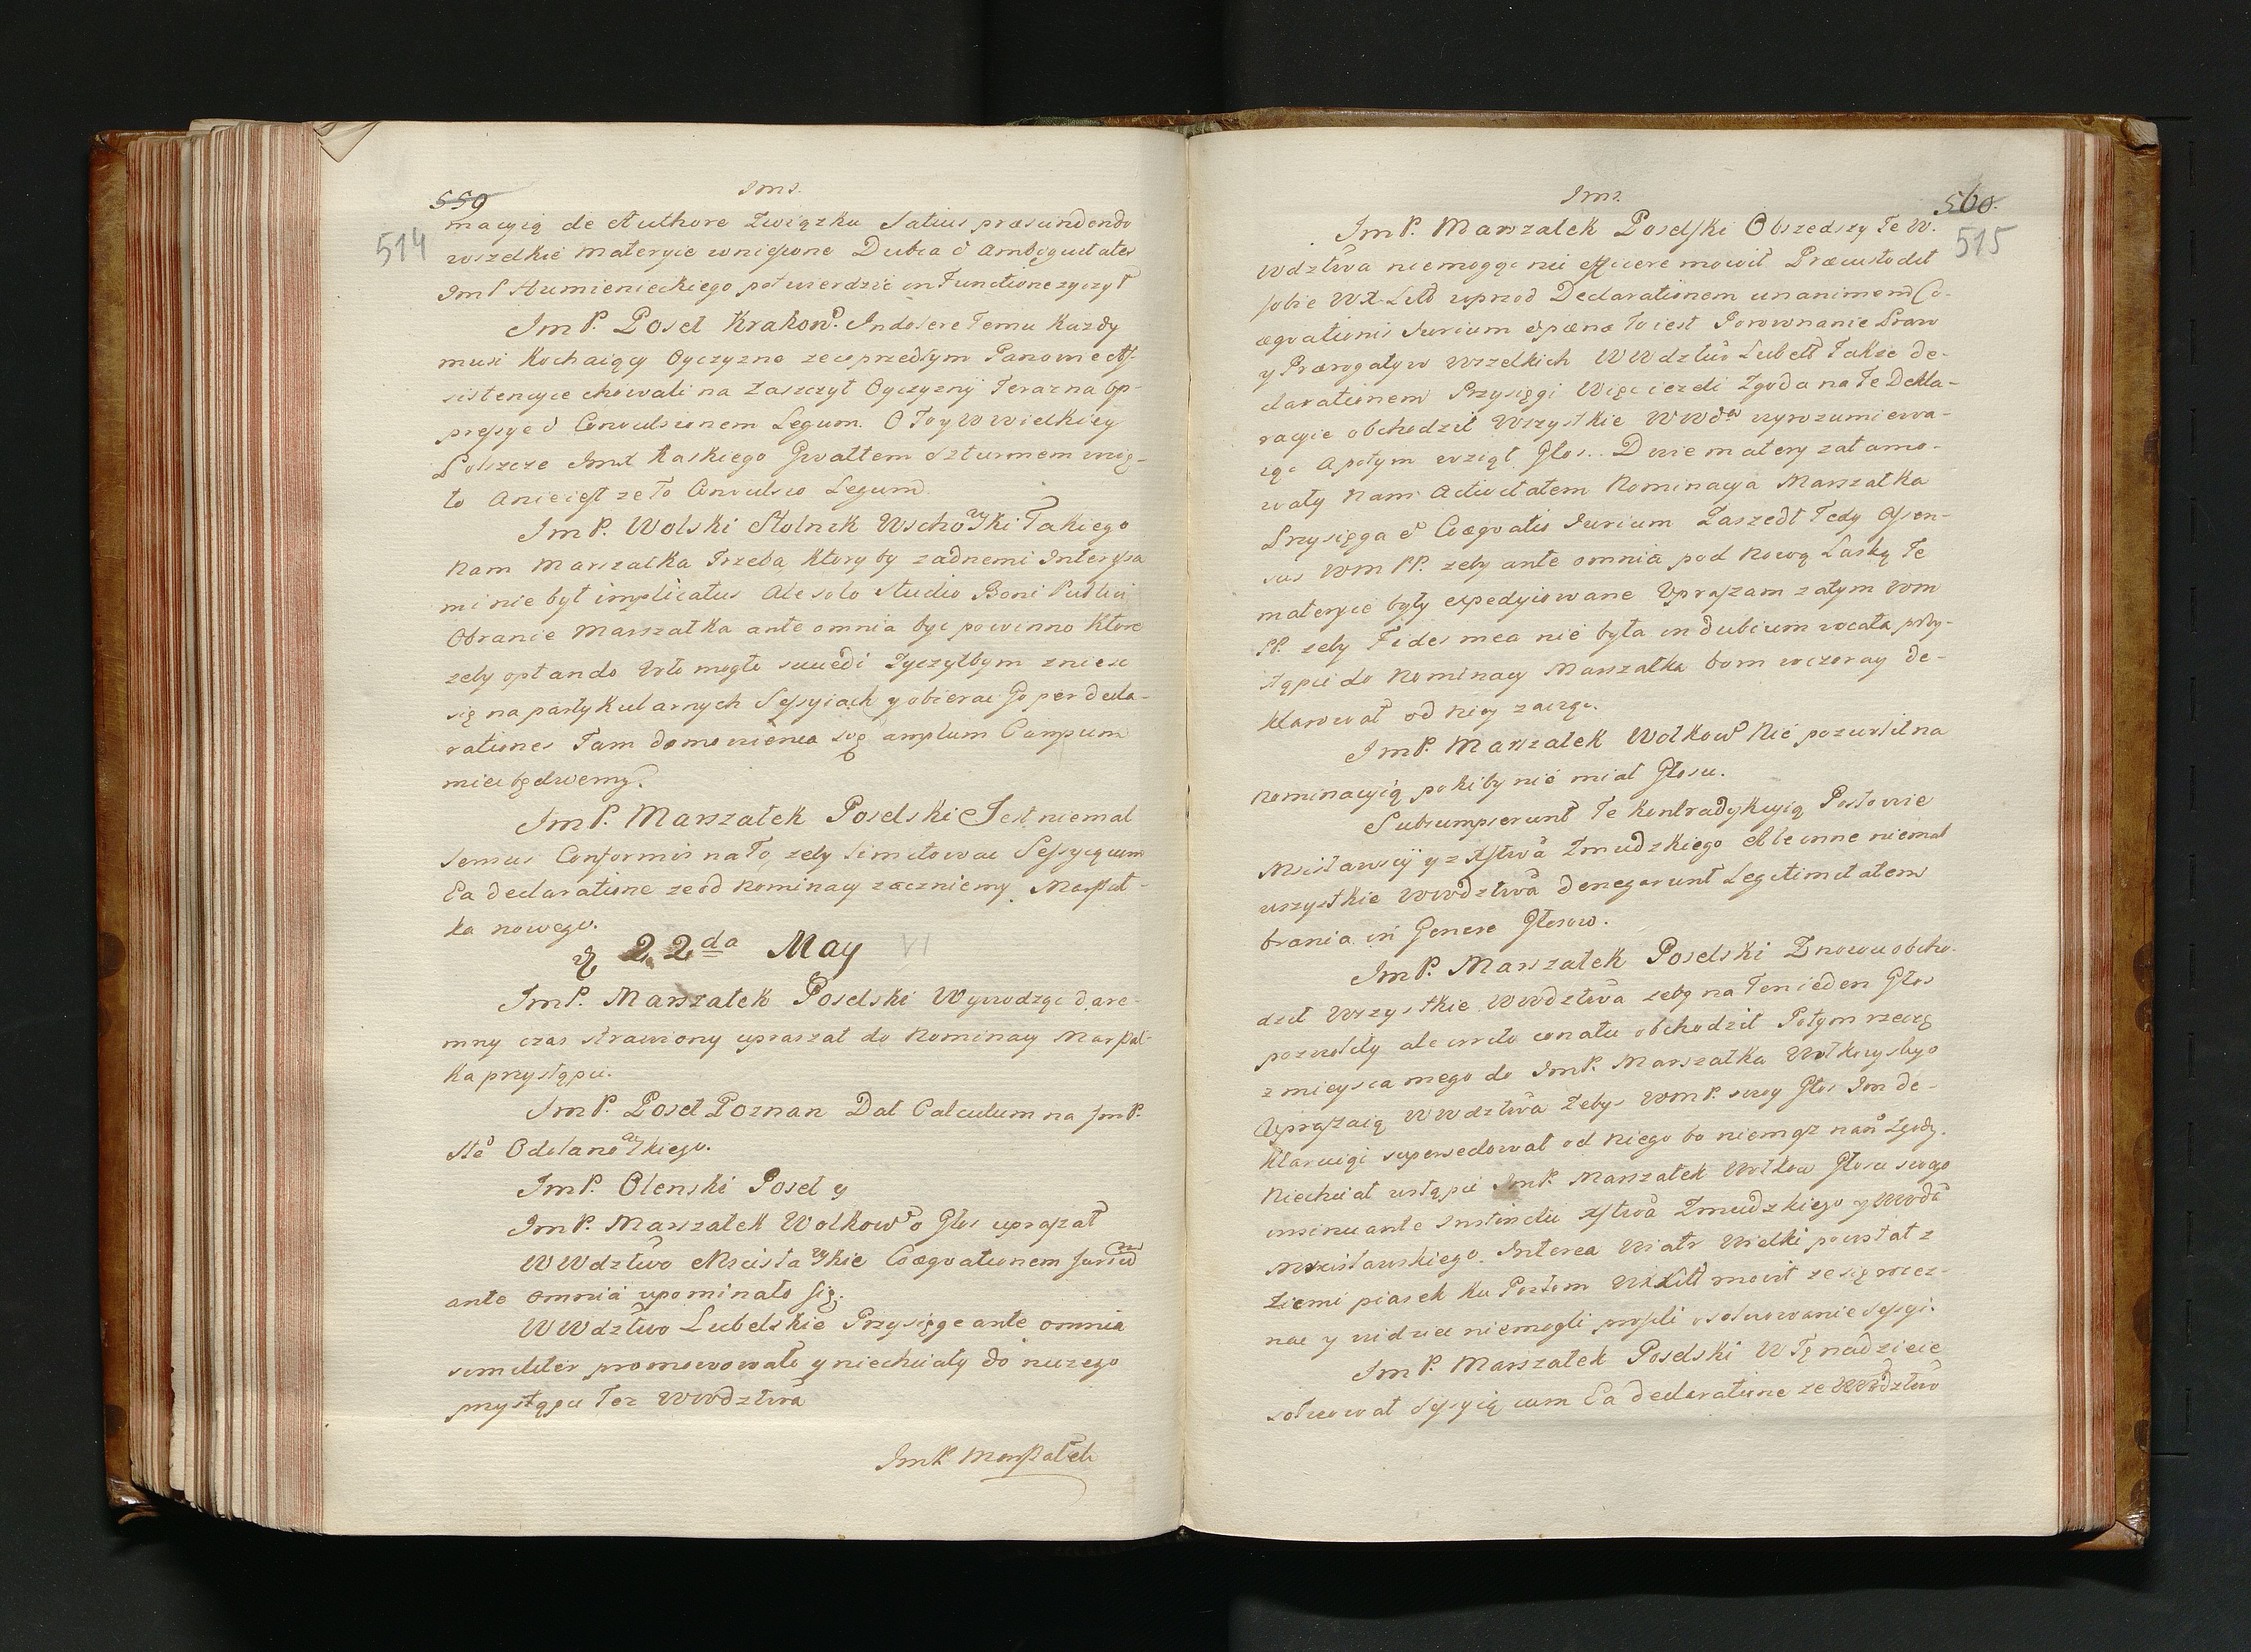 559
514
Jms.
macyią de Authore Związku Satius præscindendo
wszelkie materyie wniesione Dubia & ambiguitates
Jmś Humienieckiego potwierdzić in Functione zyczył
JmP. Poseł Krakow. Indolere Temu Kazdy
musi Kochaiący Oyczyznę ze co przedtym Panowie As-
sistencyie chowali na Zaszczyt Oyczyzny Teraz na op-
pressyę & Convulsionem Legum. O Toy w wielkiey
Polszcze Jmść Raskiego Gwałtem Szturmem wzię-
to A nie iest ze To Convulsio Legum.
JmP. Wolski Stolnik Wschowski Takiego
Nam Marszałka Trzeba Ktoryby zadnemi Interessa
mi nie był implicatus Ale solo Studio Boni Publici
Obranie Marszałka ante omnia być powinno Ktore
zeby optando cito mogło succedi Zyczyłbym zniesc
się na partykularnych Sessyiach y obierać Go per decla-
rationes Tam do mowienia się amplum Campum
mieć będziemy.
JmP. Marszałek Poselski Jest niemal
sensus Conformis na To, zeby limitować Sessyę cum
Ea declaratione ze od Nominacy zaczniemy Marszał-
ka nowego.
22da May VI
JmP. Marszałek Poselski Wywodząc dare-
mny czas strawiony upraszał do Nominacy Marszał-
ka przystąpić.
JmP. Poseł Poznan Dał Calculum na JmP.
Stę Odolanowskiego.
JmP. Olenski Poseł y
JmP. Marszałek Wołkow o Głos upraszał
WWdztwo Mscisławskie Coæquationem Jurium
ante omnia upominało się.
WWdztwo Lubelskie Przysięge ante omnia
similiter promowowało y niechciały do niczego
przystąpić Te WWdztwa
JmP. Marszałek
Jms.
560.
515
JmP. Marszałek Poselski Obszedszy Te W.
Wdztwa niemogąc nic efficere mowił Præcustodit
sobie WX Litt wprzod Declarationem unanimem Co-
æquationis Jurium & pæna To iest Porownanie Praw
y Prærogatyw wszelkich WWdztwo Lubell Takze de-
clarationem Przysięgi Więc iezeli Zgoda na Te Dekla-
racyie obchodził Wszystkie WWda wyrozumiewa-
iąc A potym wziął Głos.. Dwie matery zatamo-
wały Nam Activitatem Nominacya Marszałka
Przysięga & Coæquatio Jurium Zaszedł Tedy Assen-
sus WM PP. zeby ante omnia pod Nową Laską Te
materyie były expedyiowane Upraszam zatym WM
PP. zeby Fides mea nie była in dubium vocata przy-
stąpić do Nominacy Marszałka bom wczoray de-
klarował od Niey zacząć.
JmP. Marszałek Wołkow Nie pozwolił na
Nominacyią pokiby nie miał Głosu.
Subsumpserunt Te Kontradykcyią Posłowie
Mscisławscy y z Xstwa Zmudzkiego Ale inne niemal
wszystkie WWdztwa denegarunt Legitimitatem
brania in Genere Głosow.
JmP. Marszałek Poselski Znowu obcho-
dził Wszystkie WWdztwa zeby na Ten ieden Głos
pozwoliły ale irrito conatu obchodził Potym rzecze
z mieysca mego do JmP. Marszałka Wołkowyskigo
Upraszaią WWdztwa Zebyś WMP. swoy Głos Im de-
klaruiąc supersedował od Niego bo niemasz nań Zgody.
Niechciał ustąpić JmP. Marszałek Wołkow Głosu swego
insinuante Instinctu Xstwa Zmudzkiego y WWda
Mscisławskiego. Interea Wiatr Wielki powstał z
Ziemi piasek ku Posłom WXLitt mowił ze się prze-
nać y widzieć niemogli prosili o solwowanie Sessyi.
JmP. Marszałek Poselski W Tę nadzieię
solwował Sessyią cum Ea declaratione ze WWdztwo